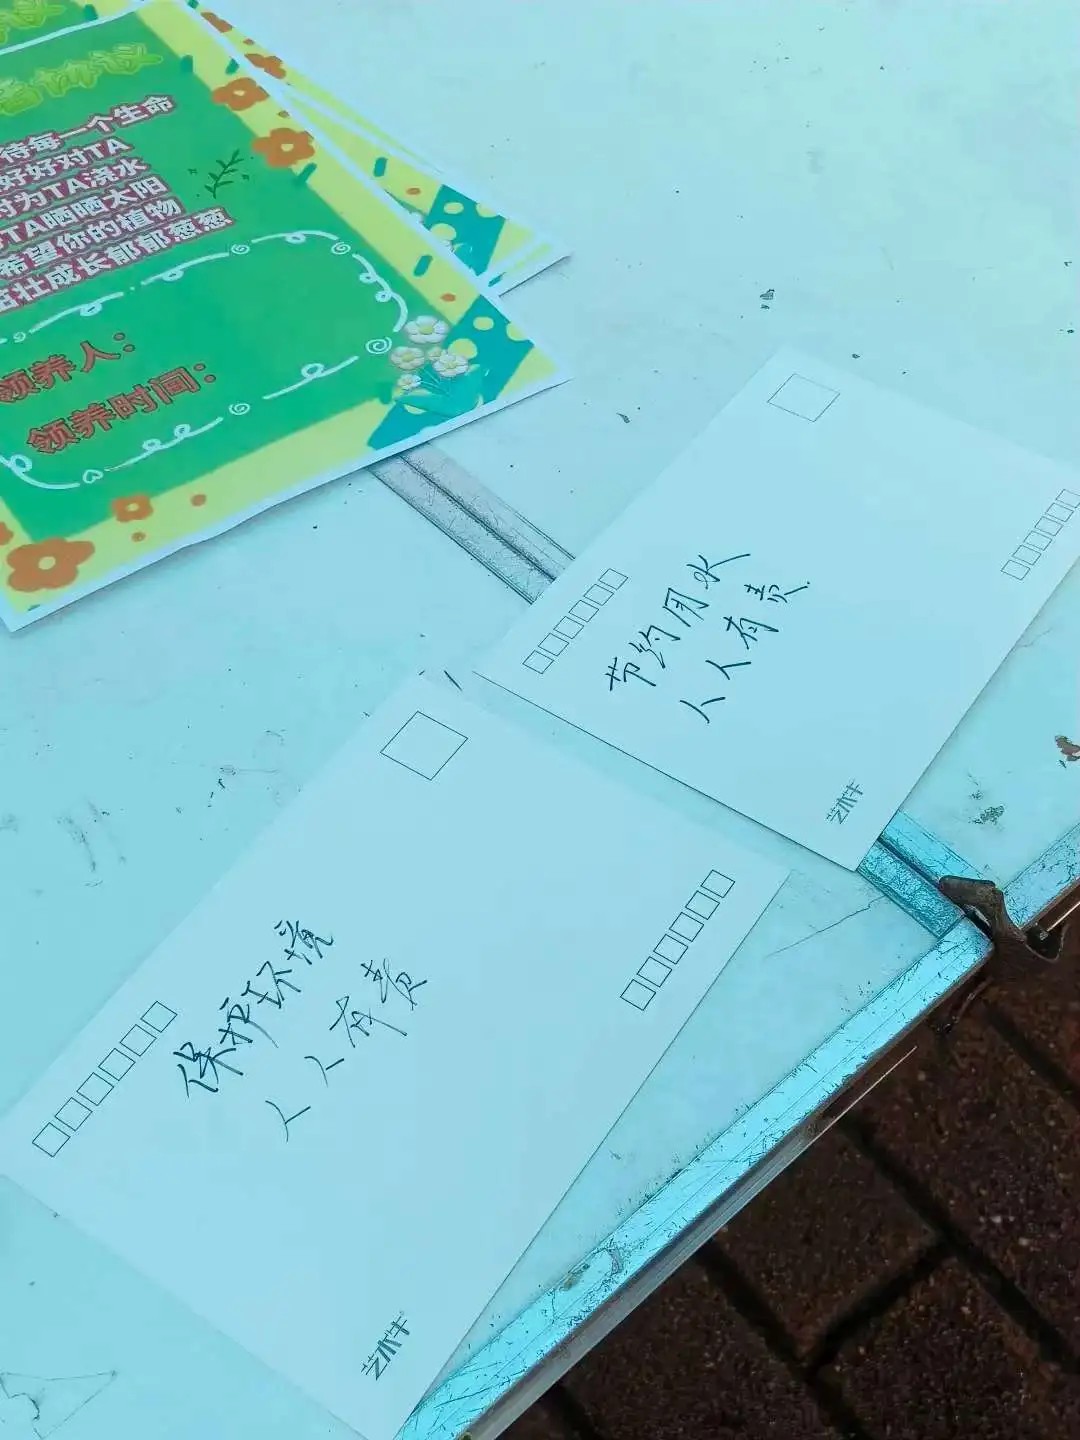 待每一个生命
好好对TA
时为TA浇水
TA晒晒太阳
希望你的植物
茁壮成长郁郁葱葱
领养人：
领养时间：
节约用水
人人有责
艺术牛
保护环境
人人有责
艺术牛